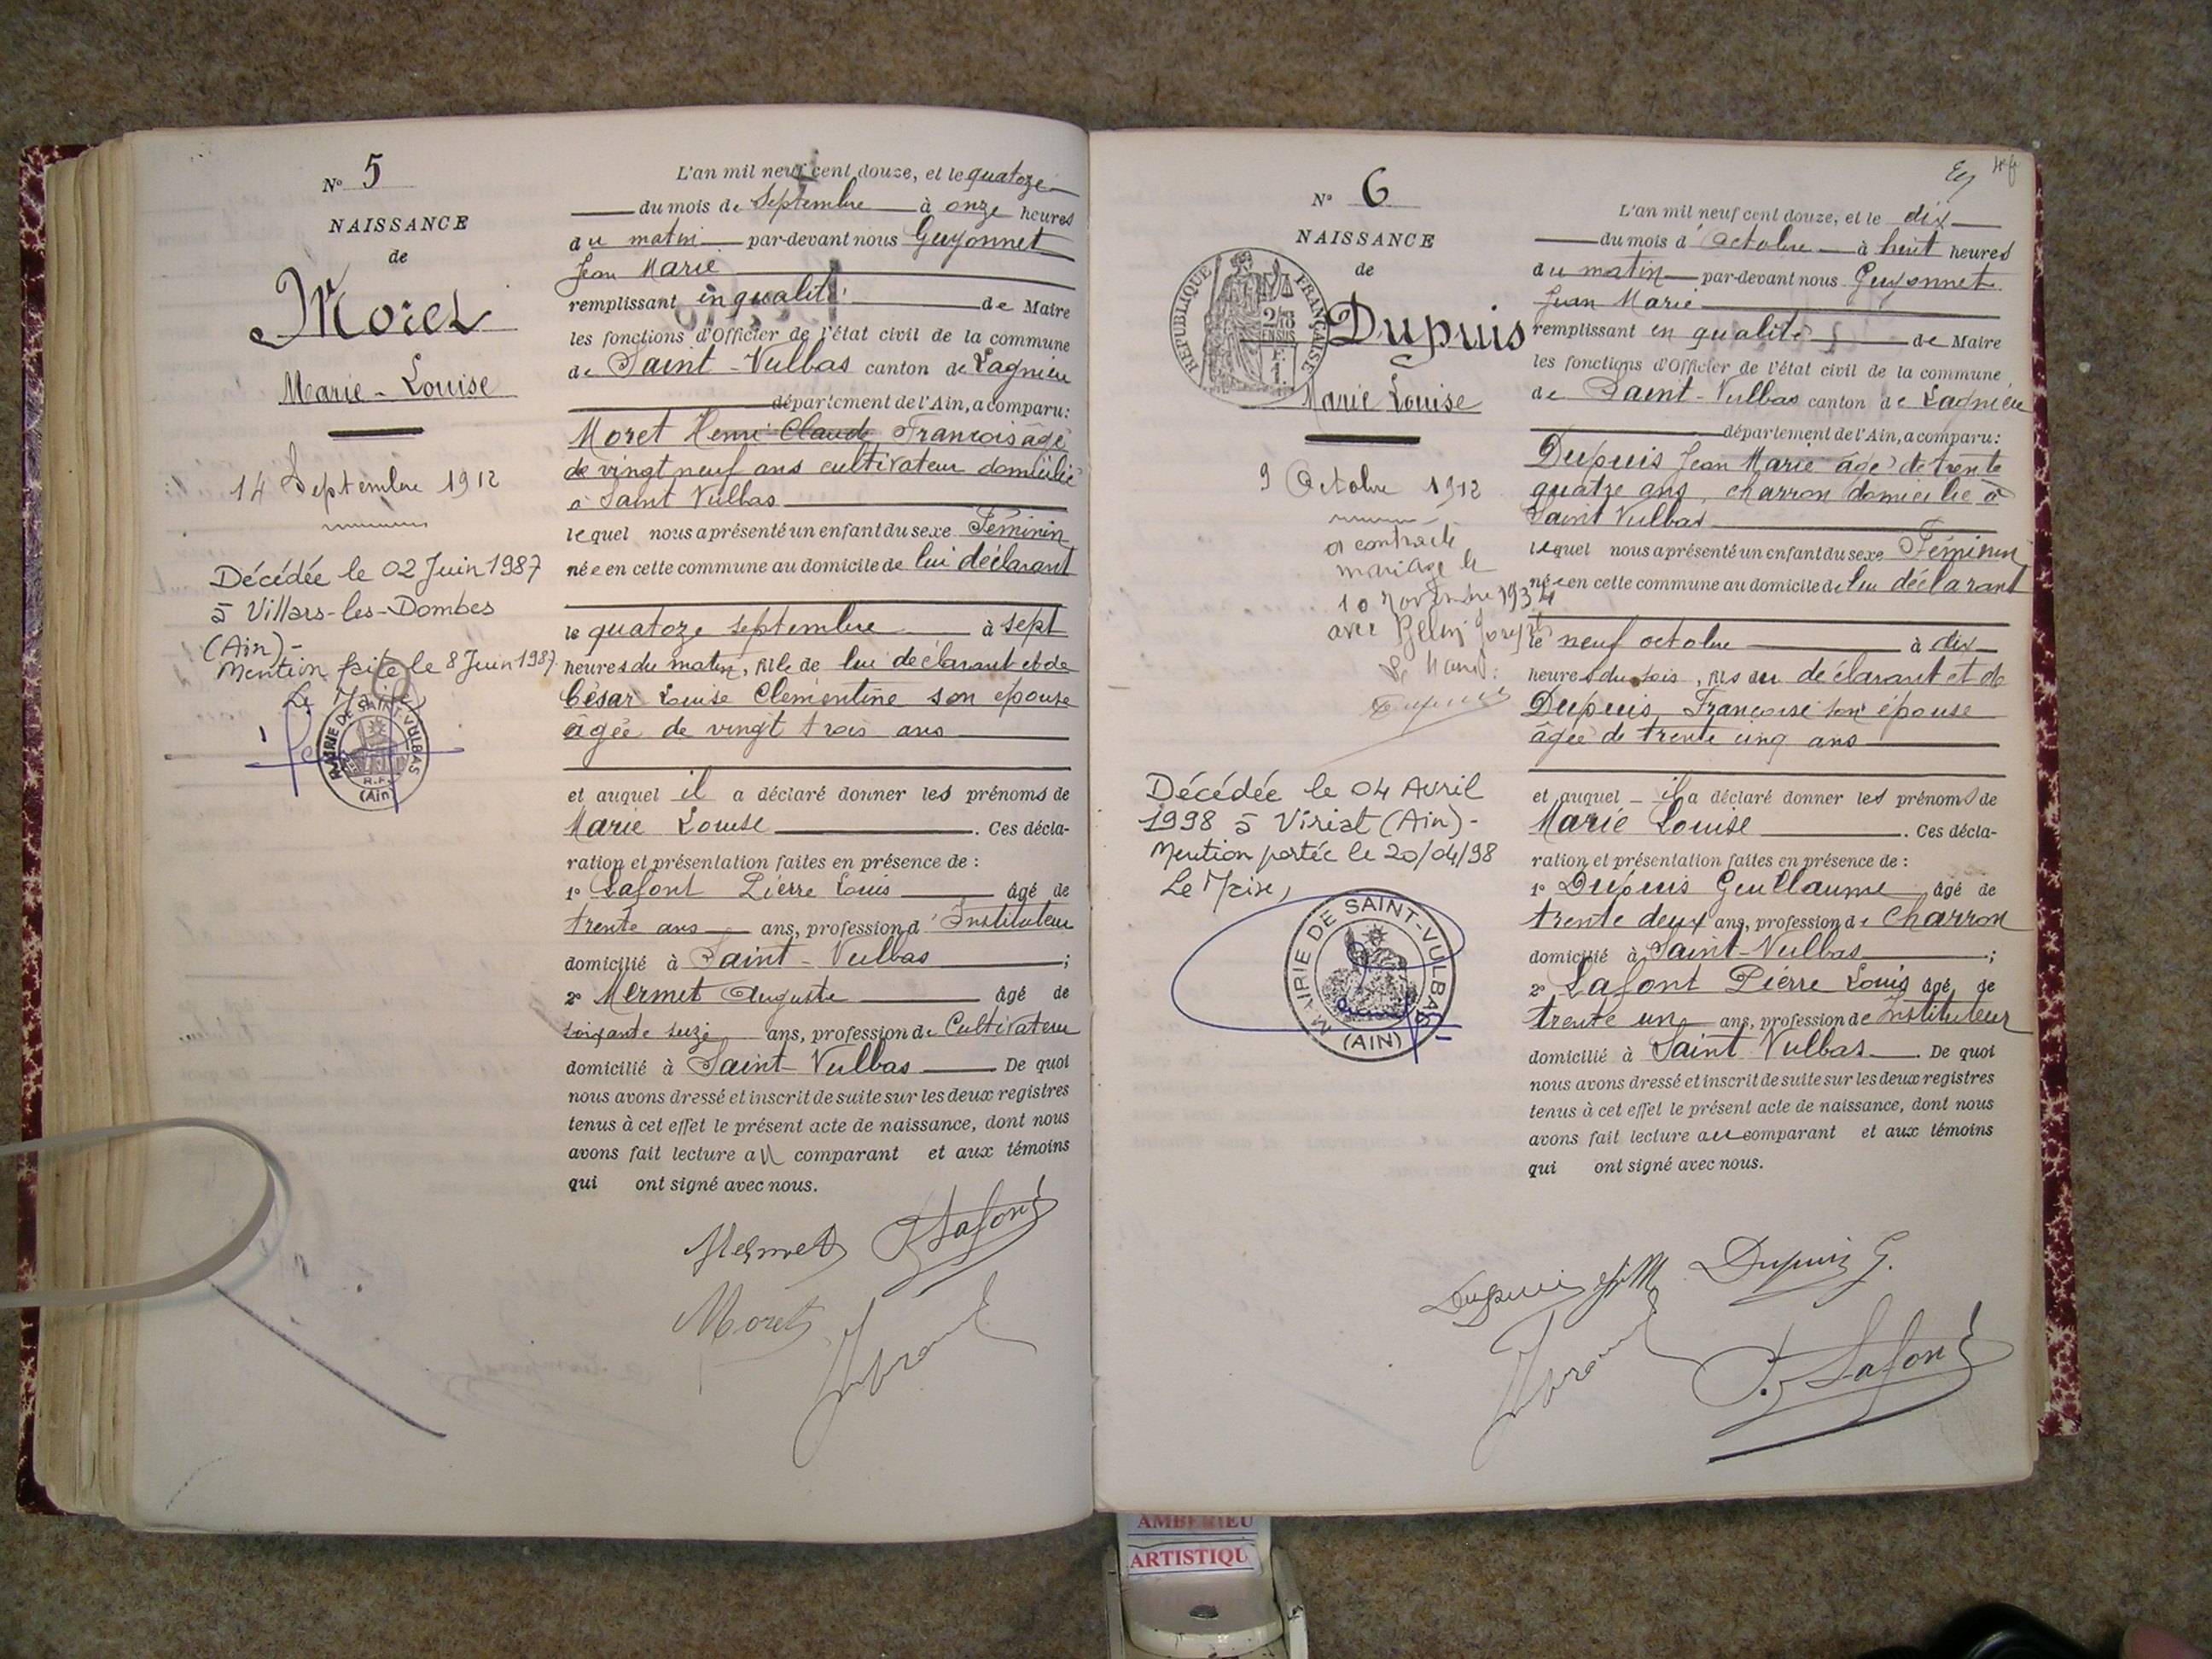 N° 5
NAISSANCE
de
Moret
Marie-Louise
14 Septembre 1912
Décédée le 02 Juin 1987
à Villars-les-Dombes
(Ain)-
Mention faite le 8 Juin 1987.
Le Maire
MAIRIE DE SAINT-VULBAS
R.F.
(Ain)
L'an mil neuf cent douze, et le quatorze
du mois de Septembre à onze heures
du matin par-devant nous Guyonnet
Jean Marie
remplissant en qualité de Maire
les fonctions d'Officier de l'état civil de la commune
de Saint-Vulbas canton de Lagnieu
département de l'Ain, a comparu:
Moret Henri Claude François âgé
de vingt neuf ans cultivateur domicilié
à Saint Vulbas
lequel nous a présenté un enfant du sexe Féminin
née en cette commune au domicile de lui déclarant
le quatorze septembre à sept
heures du matin, fille de lui déclarant et de
César Louise Clémentine son épouse
âgée de vingt trois ans
et auquel il a déclaré donner les prénoms de
Marie Louise . Ces décla-
ration et présentation faites en présence de :
1° Lafont Pierre Louis âgé de
trente ans ans, profession d'Instituteur
domicilié à Saint-Vulbas ;
2° Mermet Auguste âgé de
soixante seize ans, profession de Cultivateur
domicilié à Saint-Vulbas De quoi
nous avons dressé et inscrit de suite sur les deux registres
tenus à cet effet le présent acte de naissance, dont nous
avons fait lecture au comparant et aux témoins
qui ont signé avec nous.
Mermet Lafont
Moret
N° 6
NAISSANCE
de
REPUBLIQUE FRANÇAISE
Dupuis
Marie Louise
9 Octobre 1912
a contracté
mariage le
10 Novembre 1934
avec Joseph
Le Maire:
Dupuis
Décédée le 04 Avril
1998 à Viriat (Ain)-
Mention portée le 20/04/98
Le Maire,
MAIRIE DE SAINT-VULBAS
(AIN)
L'an mil neuf cent douze, et le dix
du mois d'Octobre à huit heures
du matin par-devant nous Guyonnet
Jean Marie
remplissant en qualité de Maire
les fonctions d'Officier de l'état civil de la commune
de Saint-Vulbas canton de Lagnieu
département de l'Ain, a comparu:
Dupuis Jean Marie âgé de trente
quatre ans, charron domicilié à
Saint Vulbas
lequel nous a présenté un enfant du sexe Féminin
née en cette commune au domicile de lui déclarant
le neuf octobre à dix
heures du soir, fils du déclarant et de
Dupuis Françoise son épouse
âgée de trente cinq ans
et auquel il a déclaré donner les prénoms de
Marie Louise . Ces décla-
ration et présentation faites en présence de :
1° Dupuis Guillaume âgé de
trente deux ans, profession de Charron
domicilié à Saint-Vulbas ;
2° Lafont Pierre Louis âgé de
trente un ans, profession de Instituteur
domicilié à Saint Vulbas . De quoi
nous avons dressé et inscrit de suite sur les deux registres
tenus à cet effet le présent acte de naissance, dont nous
avons fait lecture au comparant et aux témoins
qui ont signé avec nous.
Dupuis J M Dupuis G.
P. Lafont
AMBERIEU
ARTISTIQU